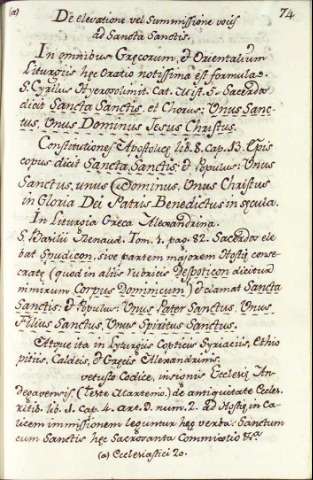 (a) 74
De elevatione vel Summissione vocis
ad Sancta Sanctis.
In omnibus Gręcorum, & Orientalium
Liturgiis hęc Oratio notissima est formula.
S. Cyrillus Hyerosolimit. Cat. Mist. 5. Sacerdos
dicit Sancta Sanctis. et Chorus: Unus Sanc-
tus, Unus Dominus Jesus Christus.
Constitutiones Apostolicę lib. 8. cap. 13. Epis
copus dicit Sancta Sanctis: & Populus: Unus
Sanctus, unus Dominus, Unus Christus
in Gloria Dei Patris Benedictus in sęcula.
In Liturgia Gręca Alexandrina.
S. Basilii Renaud. Tom. 1. pag. 82. Sacerdos ele
bat Spudicon, sive partem majorem Hostię conse-
cratę (quod in aliis rubricis Despoticon dicitur
nimirum Corpus Dominicum) & clamat Sancta
Sanctis: & Populus: Unus Pater Sanctus, Unus
Filius Sanctus, Unus Spiritus Sanctus.
Atque ita in Lyturgiis Copticis Syriacis, Ethio
pitiis, Caldeis, & Gręcis Alexandrinis.
vetusto Codice, insignis Ecclesię An-
degavensis (teste Martenio) de antiquitate Eccles.
ritib. lib. 1. cap. 4. art. 9. num. 2. ad Hostię in ca-
licem immissionem leguntur hęc verba: Sanctum
cum Sanctis hęc Sacrosanta Commixtio &c.
(a) Ecclesiastici 20.